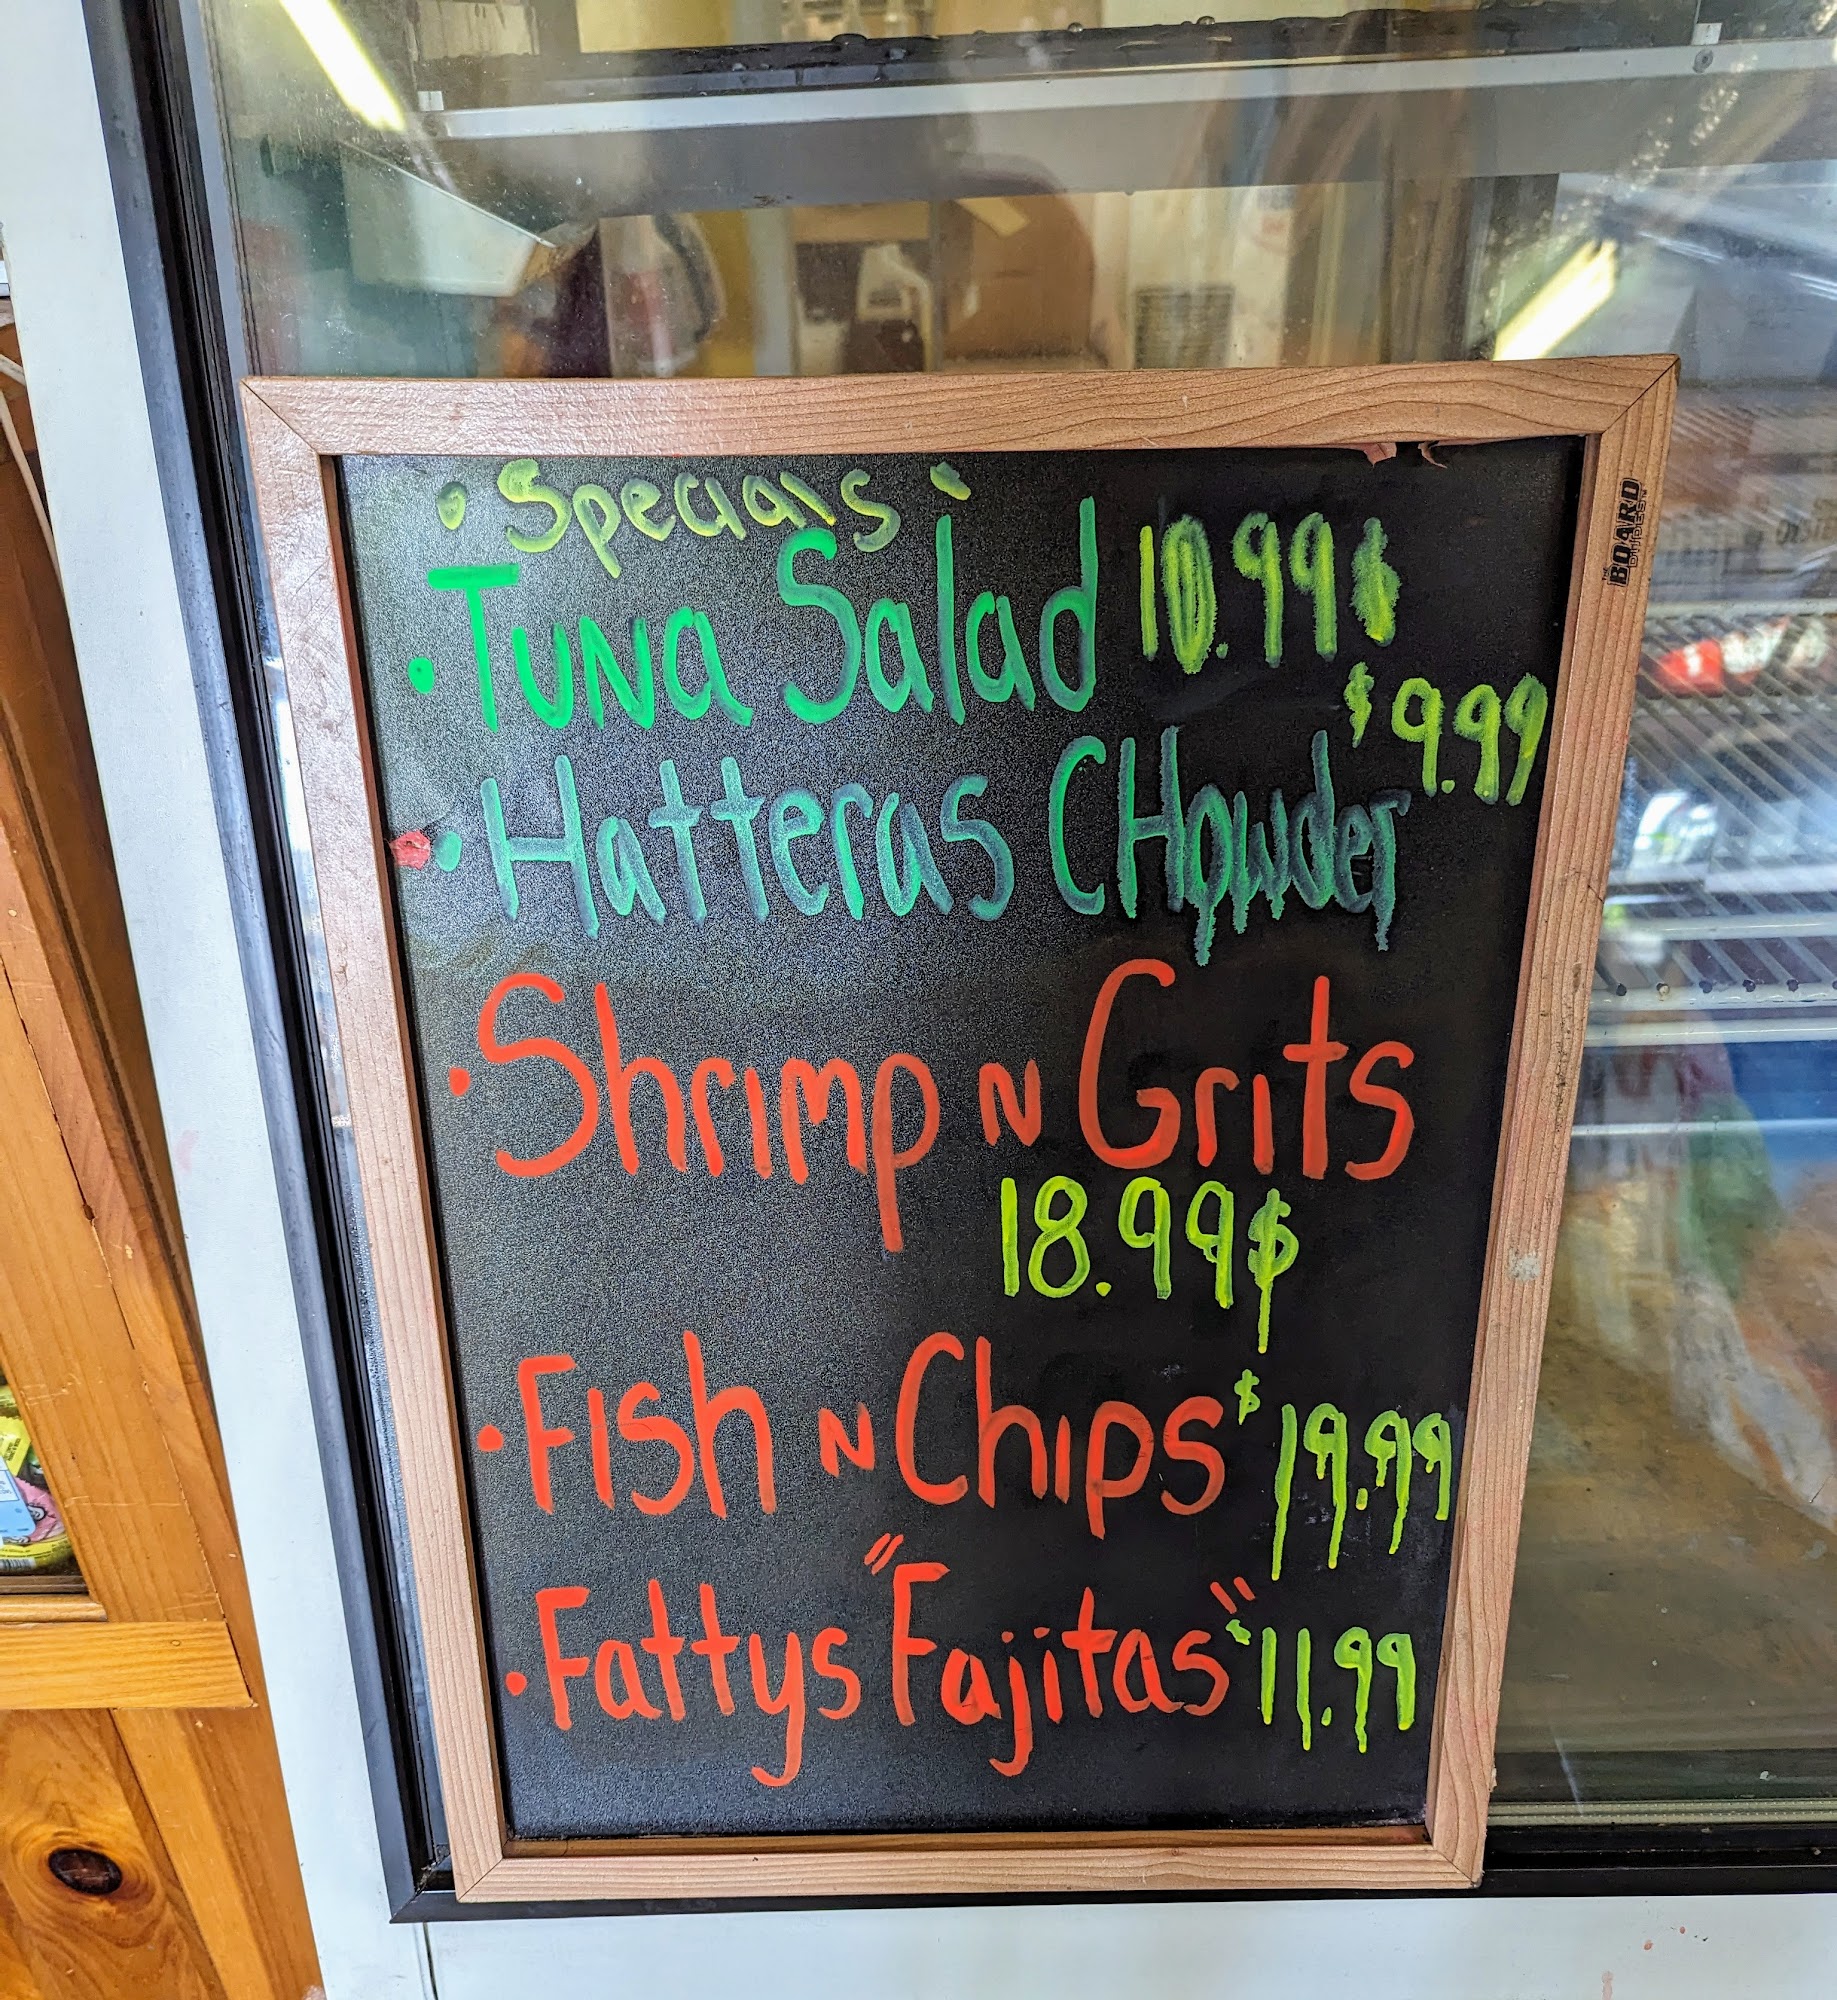 • Specials •
• Tuna Salad 10.99$
• Hatteras CHowder $9.99
• Shrimp N Grits
18.99$
• Fish N Chips $19.99
• Fattys "Fajitas" $11.99
THE BOARD DUDES™